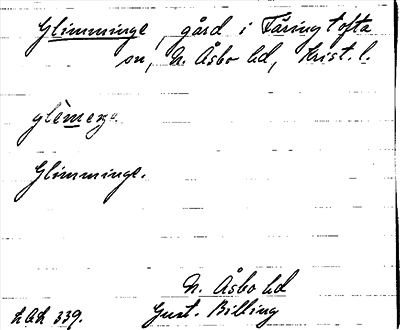 Glimminge, gård i Färingtofta
sn, N. Åsbo hd, Krist. l.
Glimminge.
N. Åsbo hd
LAL 339. Gust. Billing